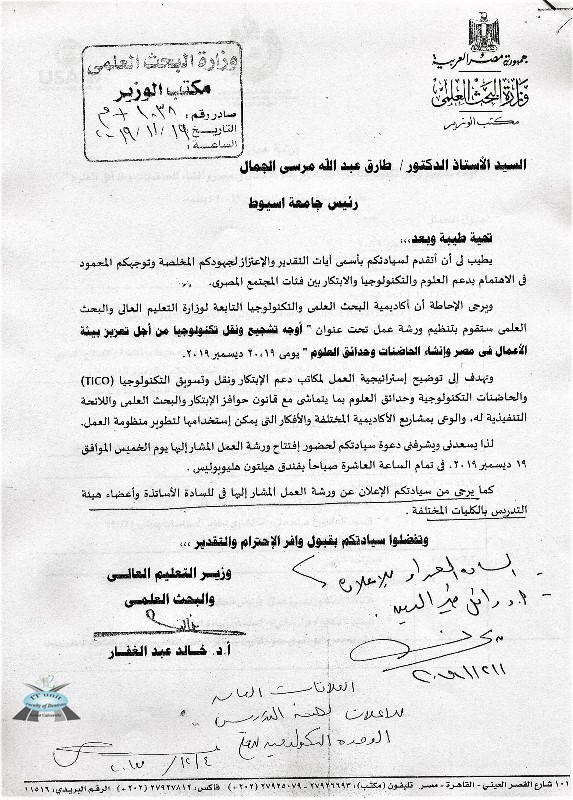 جمهورية مصر العربية
وزارة البحث العلمى
مكتب الوزير
وزارة البحث العلمى
مكتب الوزير
صادر رقم : ١٠٣٨
التاريخ : ٢٠١٩/١١/١٩
الساعة :
السيد الأستاذ الدكتور / طارق عبد الله مرسى الجمال
رئيس جامعة اسيوط
تحية طيبة وبعد،،،
يطيب لى أن أتقدم لسيادتكم بأسمى آيات التقدير والإعتزاز لجهودكم المخلصة وتوجيهكم المحمود
فى الاهتمام بدعم العلوم والتكنولوجيا والابتكار بين فئات المجتمع المصرى.
ويرجى الإحاطة أن أكاديمية البحث العلمى والتكنولوجيا التابعة لوزارة التعليم العالى والبحث
العلمى ستقوم بتنظيم ورشة عمل تحت عنوان " أوجه تشجيع ونقل تكنولوجيا من أجل تعزيز بيئة
الأعمال فى مصر وإنشاء الحاضنات وحدائق العلوم " يومى ١٩، ٢٠ ديسمبر ٢٠١٩.
وتهدف إلى توضيح إستراتيجية العمل لمكاتب دعم الإبتكار ونقل وتسويق التكنولوجيا (TICO)
والحاضنات التكنولوجية وحدائق العلوم بما يتماشى مع قانون حوافز الإبتكار والبحث العلمى واللائحة
التنفيذية له، والوعى بمشاريع الأكاديمية المختلفة والأفكار التى يمكن إستخدامها لتطوير منظومة العمل.
لذا يسعدنى ويشرفنى دعوة سيادتكم لحضور إفتتاح ورشة العمل المشار إليها يوم الخميس الموافق
١٩ ديسمبر ٢٠١٩، فى تمام الساعة العاشرة صباحاً بفندق هيلتون هليوبوليس.
كما يرجى من سيادتكم الإعلان عن ورشة العمل المشار إليها فى للسادة الأساتذة وأعضاء هيئة
التدريس بالكليات المختلفة .
وتفضلوا سيادتكم بقبول وافر الإحترام والتقدير ،،،
وزير التعليم العالى
والبحث العلمى
خالد
أ.د. خالد عبد الغفار
السادة العمداء للإعلان
العلاقات العامة
IT unit
Faculty of Dentistry
Assiut University
١٠١ شارع القصر العينى - القاهرة - مصر تليفون (مكتب): ٢٧٩٢٦٦٩٣ - ٢٧٩٢٥٠٧٩ (٢٠٢+) فاكس: ٢٧٩٢٧٨١٢ (٢٠٢+) الرقم البريدى: ١١٥١٦